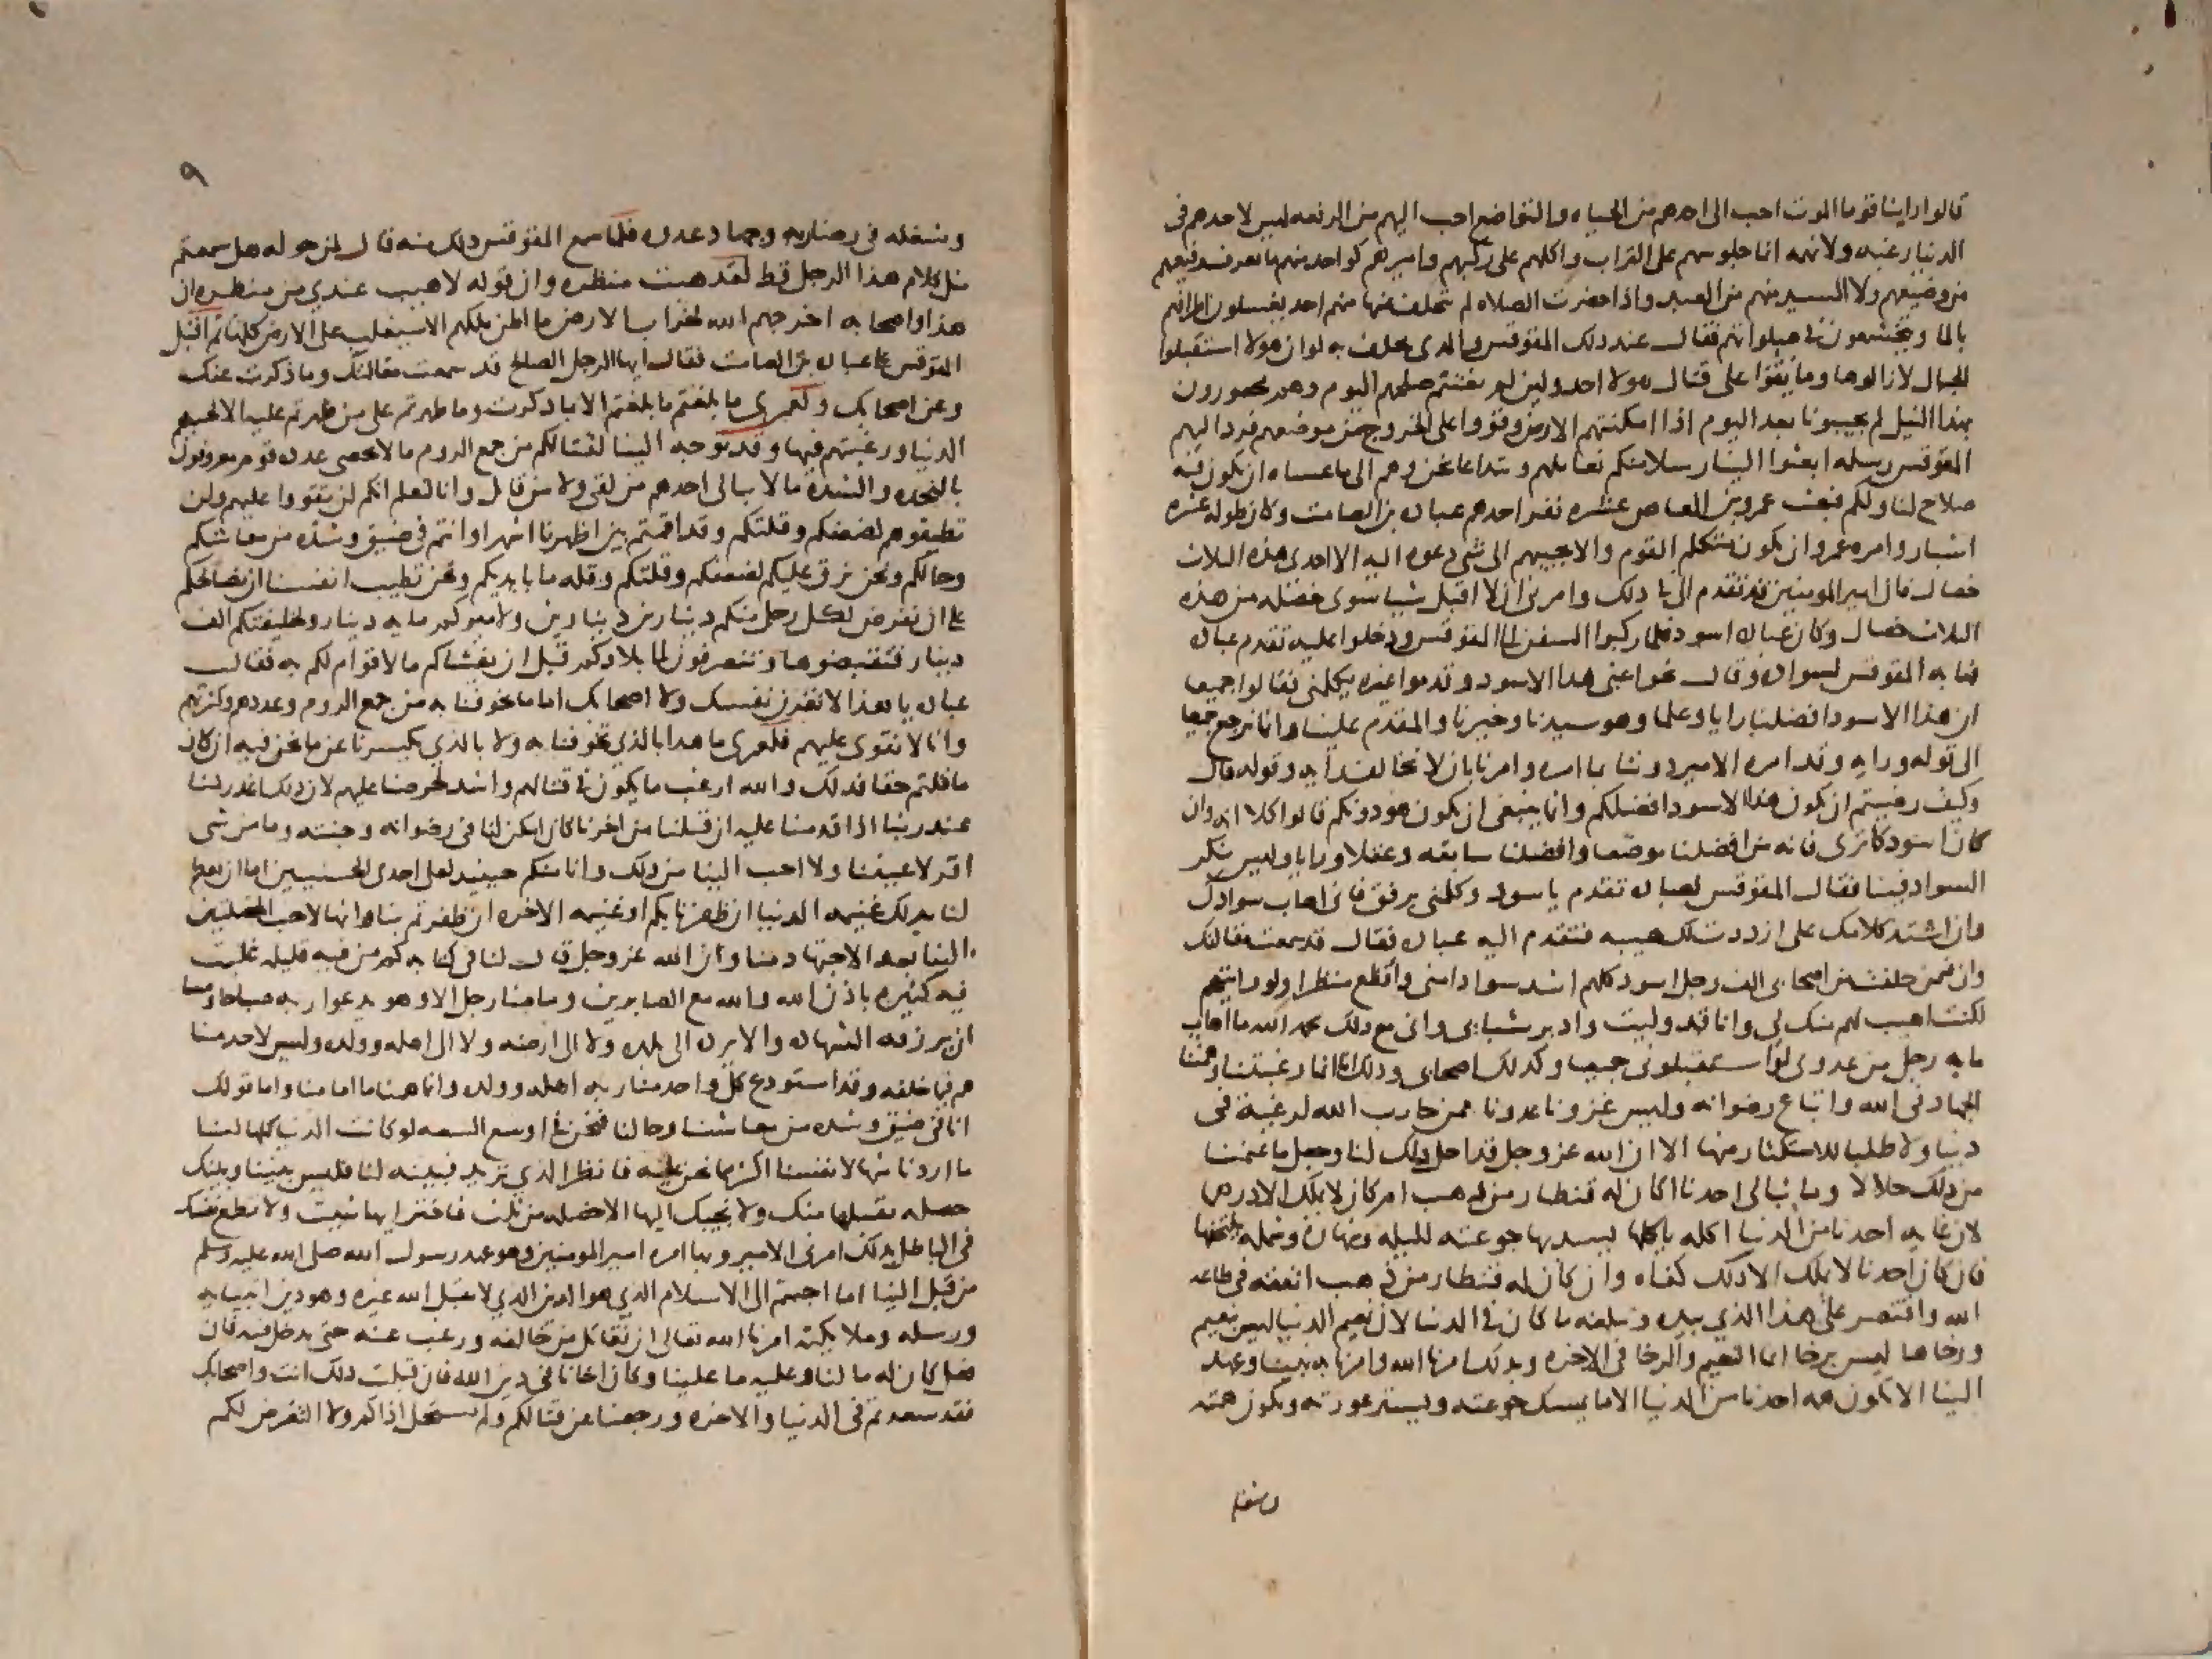 قالوا راينا قوما الموت احب الى احدهم من الحياه والتواضع احب اليهم من الرفعه ليس لاحدهم فى
الدنيا رغبه ولا نهمه انما جلوسهم على التراب واكلهم على ركبهم واميرهم كواحد منهم ما يعرف رفيعهم
من وضيعهم ولا السيد منهم من العبد واذا حضرت الصلاه لم يتخلف عنها منهم احد يغسلون اطرافهم
بالما ويتخشعون فى صلواتهم فقال عند ذلك المقوقس والذى يحلف به لو ان هولا استقبلوا
الجبال لازالوها وما يقوا على قتال هولا احد ولين لم نغتنم صلحهم اليوم وهم محصورون
بهذا النيل لم يجيبونا بعد اليوم اذا امكنتهم الارض وقووا على الخروج من موضعهم فرد اليهم
المقوقس رسله ابعثوا الينا رسلا منكم نعاملهم ونتداعا نحن وهم الى ما عساه ان يكون فيه
صلاح لنا ولكم فبعث عمرو بن العاص عشره نفر احدهم عباده بن الصامت وكان طوله عشره
اشبار وامره عمرو ان يكون متكلم القوم والا يجيبهم الى شى دعوه اليه الا احدى هذه الثلاث
خصال فان امير المومنين قد تقدم الى فى ذلك وامرنى ان لا اقبل شيا سوى خصله من هذه
الثلاث خصال وكان عباده اسود فلما ركبوا السفن الى المقوقس ودخلوا عليه تقدم عباده
فهابه المقوقس لسواده وقال نحوا عنى هذا الاسود وقدموا غيره يكلمنى فقالوا جميعا
ان هذا الاسود افضلنا رايا وعلما وهو سيدنا وخيرنا والمقدم علينا وانما نرجع جميعا
الى قوله ورايه وقد امره الامير دوننا بما امره وامرنا بان لا نخالف رايه وقوله قال
وكيف رضيتم ان يكون هذا الاسود افضلكم وانما ينبغى ان يكون هو دونكم قالوا كلا انه وان
كان اسود كما ترى فانه من افضلنا موضعا وافضلنا سابقه وعقلا ورايا وليس ينكر
السواد فينا فقال المقوقس لعباده تقدم يا اسود وكلمنى برفق فانى اهاب سوادك
وان اشتد كلامك على ازددت لك هيبه فتقدم اليه عباده فقال قد سمعت مقالتك
وان فيمن خلفت من اصحابى الف رجل اسود كلهم اشد سوادا منى وافظع منظرا ولو رايتهم
لكنت اهيب لهم منك لى وانا قد وليت وادبر شبابى وانى مع ذلك بحمد الله ما اهاب
مايه رجل من عدوى لو استقبلونى جميعا وكذلك اصحابى وذلك انما رغبتنا وهمتنا
الجهاد فى الله واتباع رضوانه وليس غزونا عدونا ممن حارب الله لرغبة فى
دنيا ولا طلبا للاستكثار منها الا ان الله عز وجل قد احل ذلك لنا وجعل ما غنمنا
من ذلك حلالا وما يبالى احدنا اكان له قنطار من ذهب ام كان لا يملك الا درهما
لان غايه احدنا من الدنيا اكله ياكلها يسد بها جوعته لليله ونهاره وشمله يلتحفها
فان كان احدنا لا يملك الا ذلك كفاه وان كان له قنطار من ذهب انفقه فى طاعه
الله واقتصر على هذا الذي بيده وتبلغه ما كان فى الدنيا لان نعيم الدنيا ليس نعيم
ورخاها ليس برخا انما النعيم والرخا فى الاخره وبذلك امرنا الله وامرنا به نبينا وعهد
الينا الا يكون همه احدنا من الدنيا الا ما يمسك جوعته ويستر عورته ويكون همته
وشغله
٩
وشغله فى رضا ربه وجهاد عدوه فلما سمع المقوقس ذلك منه قال لمن حوله هل سمعتم
مثل كلام هذا الرجل قط لقد هبت منظره وان قوله لاهيب عندي من منظره ان
هذا واصحابه اخرجهم الله لخراب الارض ما اظن ملكهم الا سيغلب على الارض كلها ثم اقبل
المقوقس على عباده بن الصامت فقال ايها الرجل الصالح قد سمعت مقالتك وما ذكرت عنك
وعن اصحابك ولعمرى ما بلغتم ما بلغتم الا بما ذكرت وما ظهرتم على من ظهرتم عليه الا لحبهم
الدنيا ورغبتهم فيها وقد توجه الينا لقتالكم من جمع الروم ما لا يحصى عدده قوم معروفون
بالنجده والشدة ما لا يبالى احدهم من لقى ولا من قاتل وانا لنعلم انكم لن تقووا عليهم ولن
تطيقوهم لضعفكم وقلتكم وقد اقمتم بين اظهرنا اشهرا وانتم فى ضيق وشدة من معاشكم
وحالكم ونحن نرق عليكم لضعفكم وقلتكم وقله ما بايديكم ونحن تطيب انفسنا ان نصالحكم
على ان نفرض لكل رجل منكم دينارين دينارين ولاميركم مايه دينار ولخليفتكم الف
دينار فتقبضوها وتنصرفون الى بلادكم قبل ان يغشاكم ما لا قوام لكم به فقال
عباده يا هذا لا تغرن نفسك ولا اصحابك اما ما تخوفنا به من جمع الروم وعددهم وكثرتهم
وانا لا نقوى عليهم فلعمرى ما هذا بالذي تخوفنا به ولا بالذي يكسرنا عن ما نحن فيه ان كان
ما قلتم حقا فذلك والله ارغب ما يكون فى قتالهم واشد لحرصنا عليهم لان ذلك اعذر لنا
عند ربنا اذا قدمنا عليه ان قتلنا من اخرنا كان امكن لنا فى رضوانه وجنته وما من شى
اقر لاعيننا ولا احب الينا من ذلك وانا منكم حينيذ لعلى احدى الحسنيين اما ان تعظم
لنا بذلك غنيمه الدنيا ان ظفرنا بكم او غنيمه الاخره ان ظفرتم بنا وانها لاحب الخصلتين
الينا بعد الاجتهاد منا وان الله عز وجل قال لنا فى كتابه كم من فيه قليله غلبت
فيه كثيره باذن الله والله مع الصابرين وما منا رجل الا وهو يدعوا ربه صباحا ومسا
ان يرزقه الشهاده والا يرده الى بلده ولا الى ارضه ولا الى اهله وولده وليس لاحد منا
هم فيما خلفه وقد استودع كل واحد منا ربه اهله وولده وانما همنا ما امامنا واما قولك
انا فى ضيق وشده من معاشنا وحالنا فنحن فى اوسع السعه لو كانت الدنيا كلها لنا
ما اردنا منها لانفسنا اكثر مما نحن عليه فانظر الذي تريد فبينه لنا فليس بيننا وبينك
خصله نقبلها منك ولا نجيبك اليها الا خصله من ثلاث فاختر ايها شيت ولا تطمع نفسك
فى الباطل بذلك امرنى الامير وبها امره امير المومنين وهو عهد رسول الله صلى الله عليه وسلم
من قبل الينا اما اجبتم الى الاسلام الذي هو الدين الذي لا يقبل الله غيره وهو دين انبيايه
ورسله وملايكته امرنا الله تعالى ان نقاتل من خالفه ورغب عنه حتى يدخل فيه فان
فعل كان له ما لنا وعليه ما علينا وكان اخانا فى دين الله فان قبلت ذلك انت واصحابك
فقد سعدتم فى الدنيا والاخره ورجعنا عن قتالكم ولم نستحل اذاكم ولا التعرض لكم